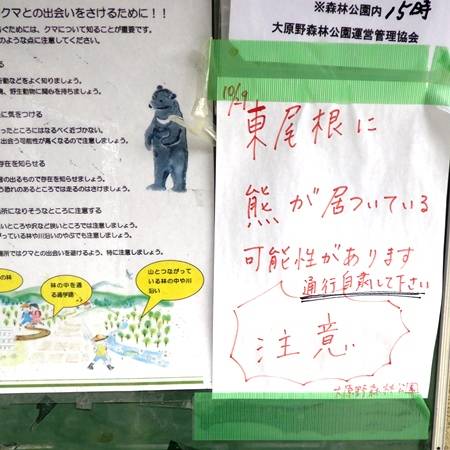 クマとの出会いをさけるために！！
ぐためには、クマについて知ることが重要です。
のような点に注意してください。
動などをよく知りましょう。
境、野生動物に関心を持ちましょう。
に気をつける
ったところにはなるべく近づかない。
出会う可能性が高くなるので注意しましょう。
存在を知らせる
音の出るもので存在を知らせましょう。
う恐れのあるところでは走るのはさけましょう。
場所になりそうなところに注意する
いところや沢など狭いところでは注意しましょう。
がっている林や川沿いのやぶでも注意しましょう。
場所ではクマとの出会いを避けるよう、特に注意しましょう。
の林
林の中を通る通学路
山とつながっている林の中や川沿い
※森林公園内 15時
大原野森林公園運営管理協会
10/29
東尾根に
熊が居ついている
可能性があります
通行自粛して下さい
注意
大原野森林公園